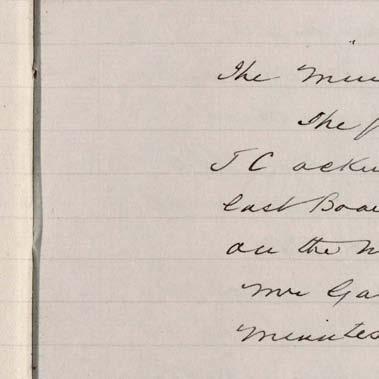 The Min
The
J C acku
last Boar
on the
Mr Ga
Minutes